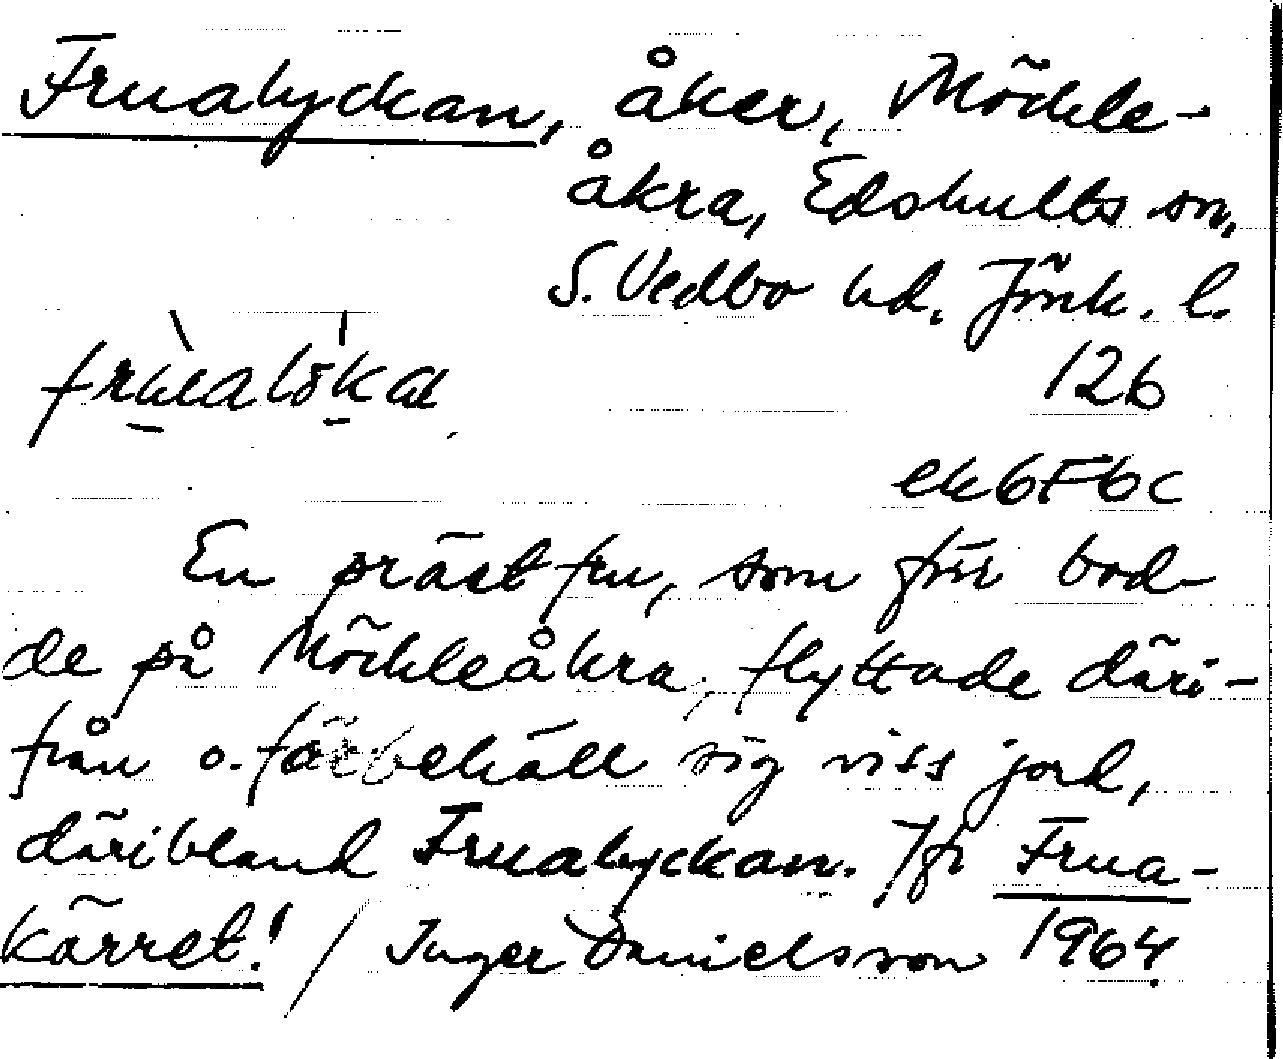 Frualyckan, åker, Möckle-
åkra, Edshults sn,
S. Vedbo hd. Jönk. l.
126
ek6F6c
En prästfru, som förr bod-
de på Möckleåkra, flyttade däri-
från o. förbehöll sig viss jord,
däribland Frualyckan. Jfr Frua-
kärret! / Inger Danielsson 1964.